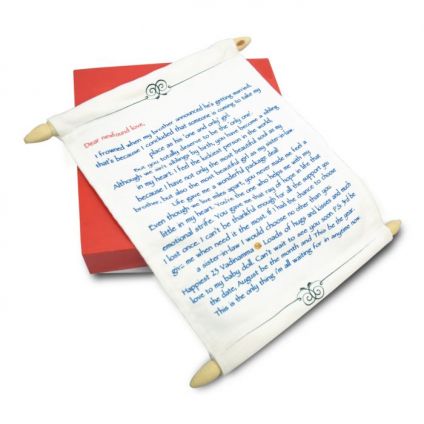 Dear newfound love,
I frowned when my brother announced he's getting married,
that's because I concluded that someone is coming to take my
place as his 'one and only' girl.
But you totally deserve to be 'the only one'.
Although we isn't siblings by birth, you have become a sibling
in my heart. I feel the luckiest person in the world,
because I have not only the most beautiful soul as my
brother, but also the most beautiful girl as my sister in law.
Life gave me a wonderful package deal!
Even though we live miles apart, you never made me feel a
little in my heart. You're the one who helps me with my
emotional strife. You gave me that ray of hope in life that
I lost once. I can't be thankful enough for all the support you
give me when need it the most. If I had the chance to choose
a sister-in-law I would choose no other than you.
Happiest 23 Vadinamma Loads of hugs and kisses and much
love to my baby doll. Can't wait to see you soon P.S 3rd be
the date, August be the month and This be the year.
This is the only thing i'm all waiting for in anytime now.